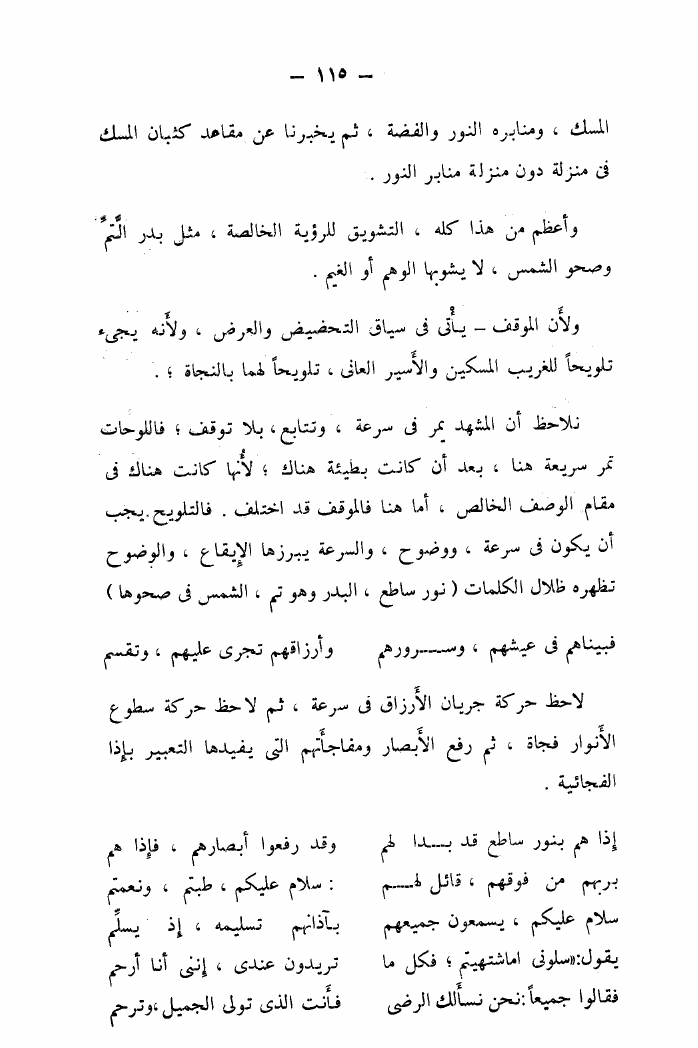 – ١١٥ –
المسك ، ومنابره النور والفضة ، ثم يخبرنا عن مقاعد كثبان المسك
فى منزلة دون منزلة منابر النور .
وأعظم من هذا كله ، التشويق للرؤية الخالصة ، مثل بدر التَّمِّ
وصحو الشمس ، لا يشوبها الوهم أو الغيم .
ولأن الموقف – يأْتى فى سياق التحضيض والعرض ، ولأَنه يجىء
تلويحاً للغريب المسكين والأَسير العانى ، تلويحاً لهما بالنجاة ؛ .
نلاحظ أن المشهد يمر فى سرعة ، وتتابع، بلا توقف ؛ فاللوحات
تمر سريعة هنا ، بعد أن كانت بطيئة هناك ؛ لأَنها كانت هناك فى
مقام الوصف الخالص ، أما هنا فالموقف قد اختلف . فالتلويح يجب
أن يكون فى سرعة ، ووضوح ، والسرعة يبرزها الإيقاع ، والوضوح
تظهره ظلال الكلمات ( نور ساطع ، البدر وهو تم ، الشمس فى صحوها )
فبيناهم فى عيشهم ، وســـرورهم وأرزاقهم تجرى عليهم ، وتقسم
لاحظ حركة جريان الأَرزاق فى سرعة ، ثم لاحظ حركة سطوع
الأَنوار فجاة ، ثم رفع الأَبصار ومفاجأَتهم التى يفيدها التعبير بإِذا
الفجائية .
إذا هم بنور ساطع قد بـــدا لهم وقد رفعوا أبصارهم ، فإذا هم
بربهم من فوقهم ، قائل لهـــم : سلام عليكم ، طبتم ، ونعمتم
سلام عليكم ، يسمعون جميعهم بآذانهم تسليمه ، إذ يسلِّم
يقول:«سلونى اماشتهيتم ؛ فكل ما تريدون عندى ، إننى أنا أرحم
فقالوا جميعاً :نحن نسأَلك الرضى فأَنت الذى تولى الجميل ،وترحم